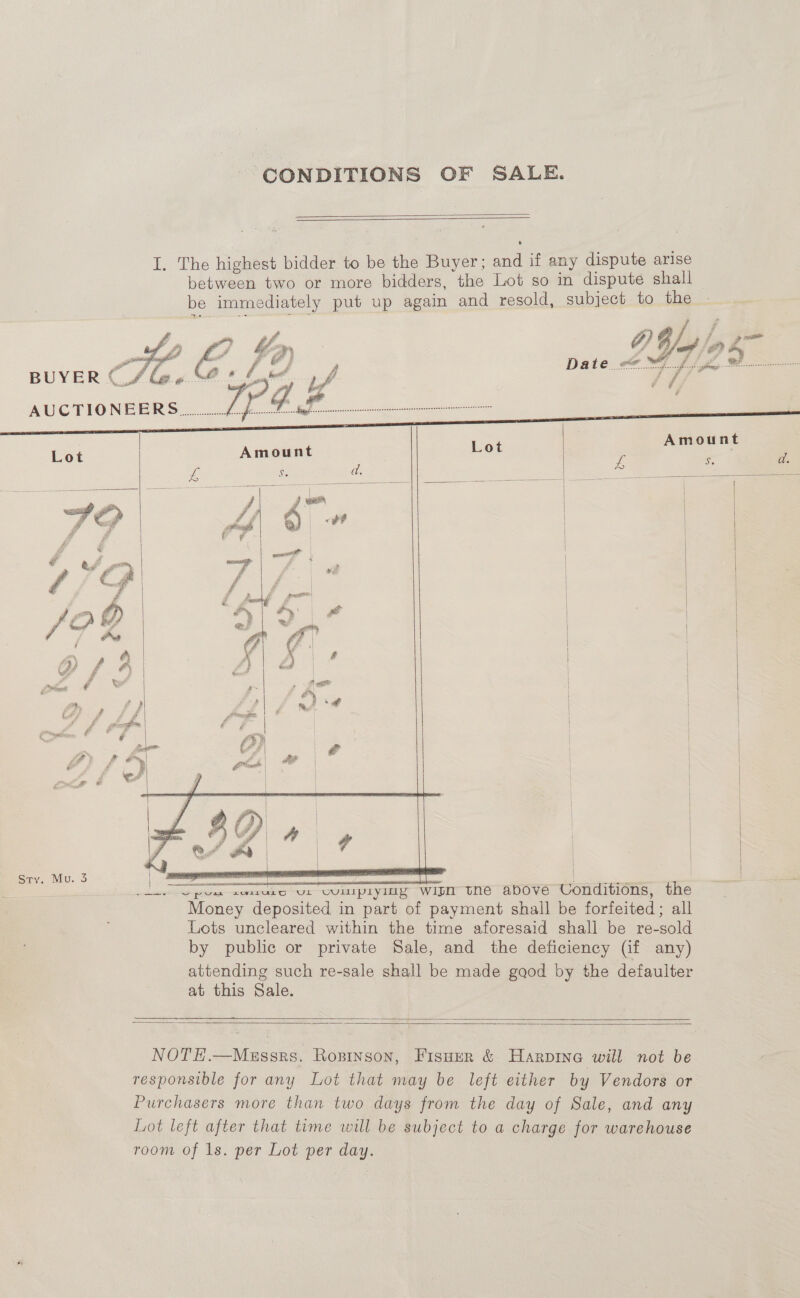 CONDITIONS OF SALE.
I. The highest bidder to be the Buyer; and if any dispute arise
between two or more bidders, the Lot so in dispute shall
be immediately put up again and resold, subject to the
BUYER
Date
AUCTIONEERS
Lot Amount Lot Amount
£ s. d. £ s. d.
79 4 5 -
7 7 -
102 5 5 -
213 8 8 -
214 4 15 -
215 2 - -
£ 32 - -
Sty. Mu. 3
complying with the above Conditions, the
Money deposited in part of payment shall be forfeited; all
Lots uncleared within the time aforesaid shall be re-sold
by public or private Sale, and the deficiency (if any)
attending such re-sale shall be made good by the defaulter
at this Sale.
NOTE.—Messrs. Robinson, Fisher & Harding will not be
responsible for any Lot that may be left either by Vendors or
Purchasers more than two days from the day of Sale, and any
Lot left after that time will be subject to a charge for warehouse
room of 1s. per Lot per day.